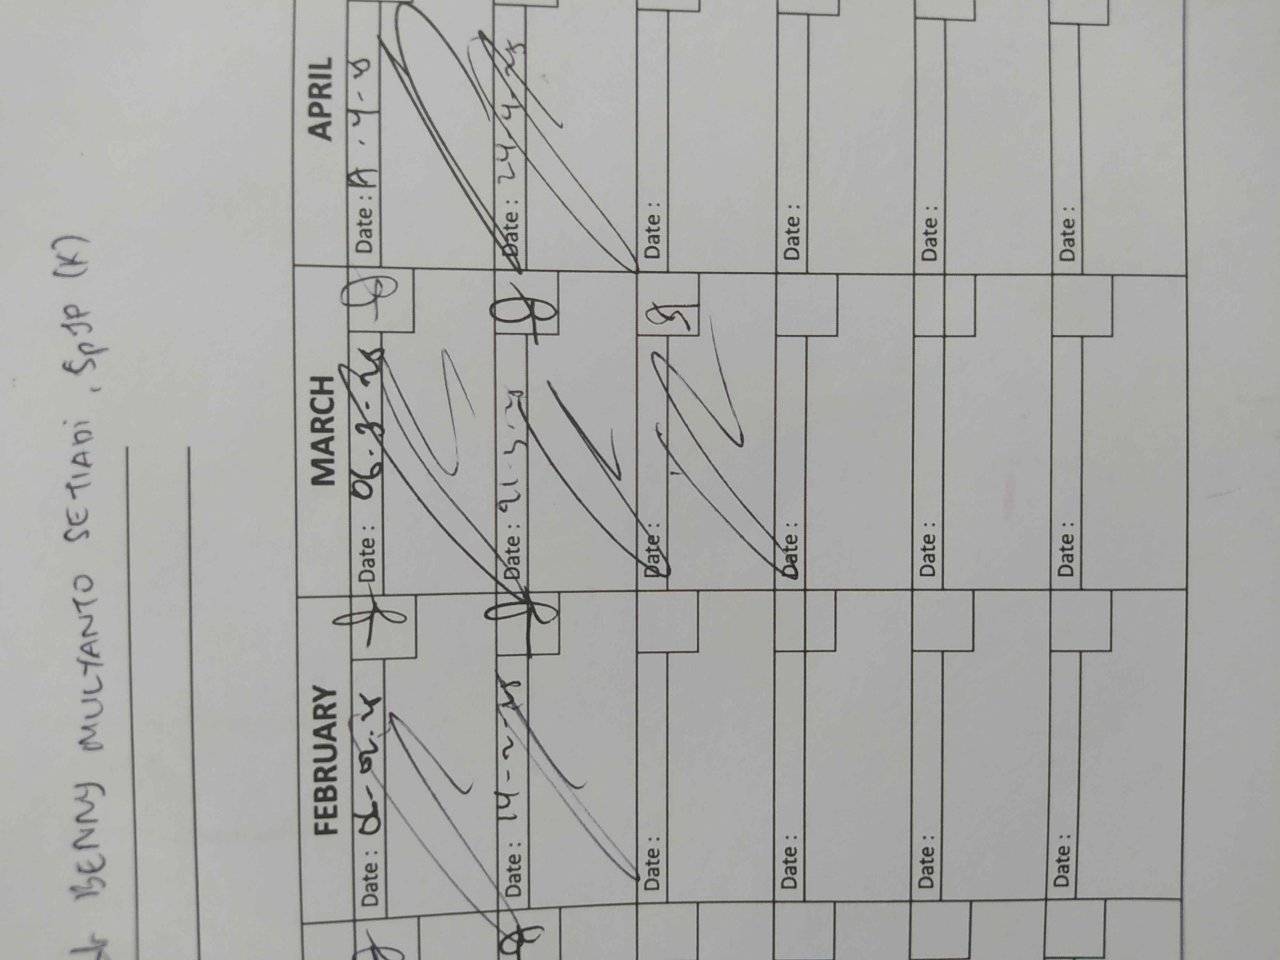 dr BENNY MULYANTO SETIADI, SpJP (K)
FEBRUARY MARCH APRIL
Date: Date: 06.3-25 Date:
Date: 14-2-25 Date: 21.3.25 Date: 24-4-25
Date: Date: Date:
Date: Date: Date:
Date: Date: Date:
Date: Date: Date: